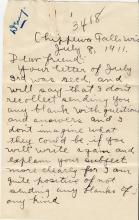 3418
Chippewa Falls Wis
July 8, 1911.
Dear friend:
Your letter of July
3rd was recd, and
will say that I don't
recollect sending you
any blank with questions
and answers and I
don't imagine what
they could be if you
will write again and
explain your subject
more clearly for I am
quite positive of not
sending any blanks of
any kind